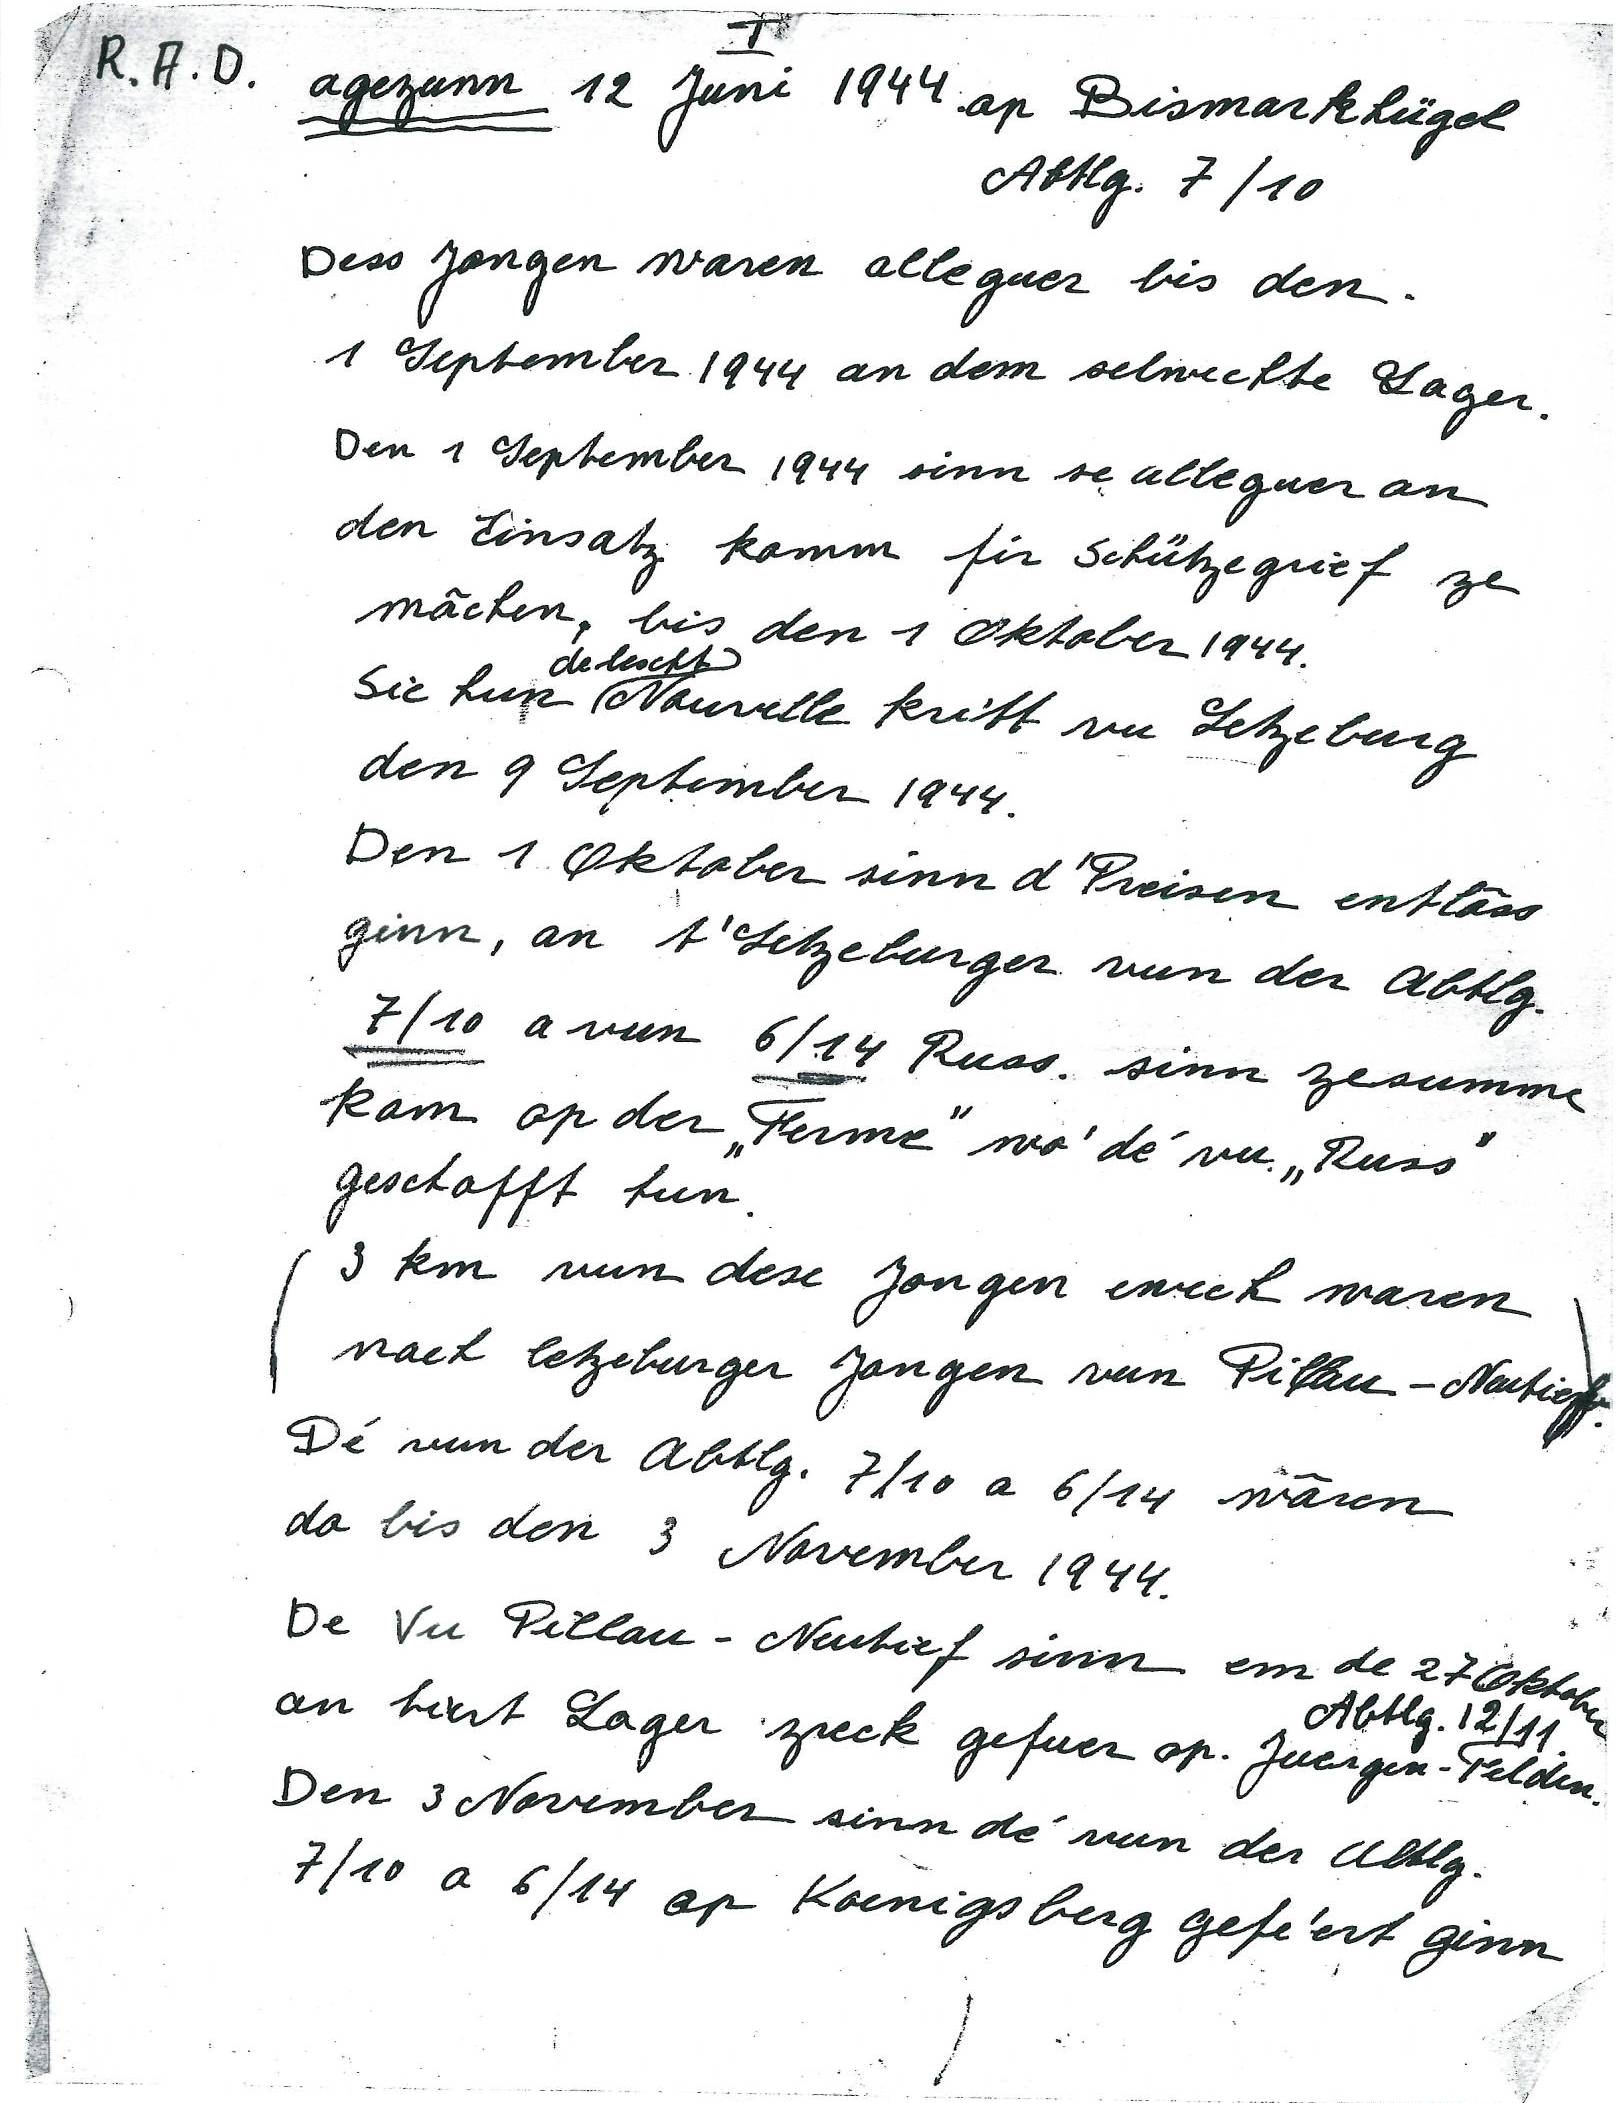 I
R.A.D. agezunn 12 Juni 1944 op Bismarkhügel
Abtlg. 7/10
Dess Jongen waren alleguer bis den.
1 September 1944 an dem selwechte Lager.
Den 1 September 1944 sinn se alleguer an
den Einsatz komm fir Schützegrief ze
mãchen, bis den 1 Oktober 1944.
de lescht
Sie hun Nouvelle kritt vu Letzeburg
den 9 September 1944.
Den 1 Oktober sinn d'Preisen entlãss
ginn, an t'Letzeburger vun der Abtlg.
7/10 a vun 6/14 Russ. sinn zesumme
kom op der „Ferme" wo' dé vu „Russ"
geschafft hun.
(3 km vun dese Jongen ewech waren
nach letzeburger Jongen vun Pillau-Neutief).
Dé vun der Abtlg. 7/10 a 6/14 wãren
do bis den 3 November 1944.
De Vu Pillau-Neutief sinn em de 27 Oktober
Abtlg. 12/11
an hiert Lager zreck gefuer op. Juergen-Felden.
Den 3 November sinn dé vun der Abtlg.
7/10 a 6/14 op Koenigsberg gefe'ert ginn